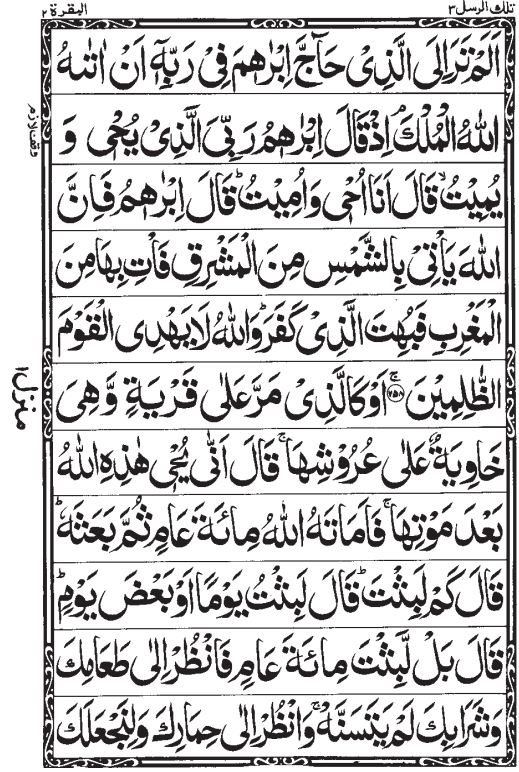 تلك الرسل ٣
البقرة ٢
اَلَمْ تَرَ اِلَى الَّذِیْ حَآجَّ اِبْرٰهٖمَ فِیْ رَبِّهٖۤ اَنْ اٰتٰىهُ
اللّٰهُ الْمُلْكَ ۘ اِذْ قَالَ اِبْرٰهٖمُ رَبِّیَ الَّذِیْ یُحْیٖ وَ
یُمِیْتُ ۙ قَالَ اَنَا اُحْیٖ وَاُمِیْتُ ؕ قَالَ اِبْرٰهٖمُ فَاِنَّ
اللّٰهَ یَاْتِیْ بِالشَّمْسِ مِنَ الْمَشْرِقِ فَاْتِ بِهَا مِنَ
الْمَغْرِبِ فَبُهِتَ الَّذِیْ كَفَرَ ؕ وَاللّٰهُ لَا یَهْدِی الْقَوْمَ
الظّٰلِمِیْنَ ۚ﴿۲۵۸﴾ اَوْ كَالَّذِیْ مَرَّ عَلٰی قَرْیَةٍ وَّهِیَ
خَاوِیَةٌ عَلٰی عُرُوْشِهَا ۚ قَالَ اَنّٰی یُحْیٖ هٰذِهِ اللّٰهُ
بَعْدَ مَوْتِهَا ۚ فَاَمَاتَهُ اللّٰهُ مِائَةَ عَامٍ ثُمَّ بَعَثَهٗ ؕ
قَالَ كَمْ لَبِثْتَ ؕ قَالَ لَبِثْتُ یَوْمًا اَوْ بَعْضَ یَوْمٍ ؕ
قَالَ بَلْ لَّبِثْتَ مِائَةَ عَامٍ فَانْظُرْ اِلٰی طَعَامِكَ
وَشَرَابِكَ لَمْ یَتَسَنَّهْ ۚ وَانْظُرْ اِلٰی حِمَارِكَ وَلِنَجْعَلَكَ
وقف لازم
منزل ١